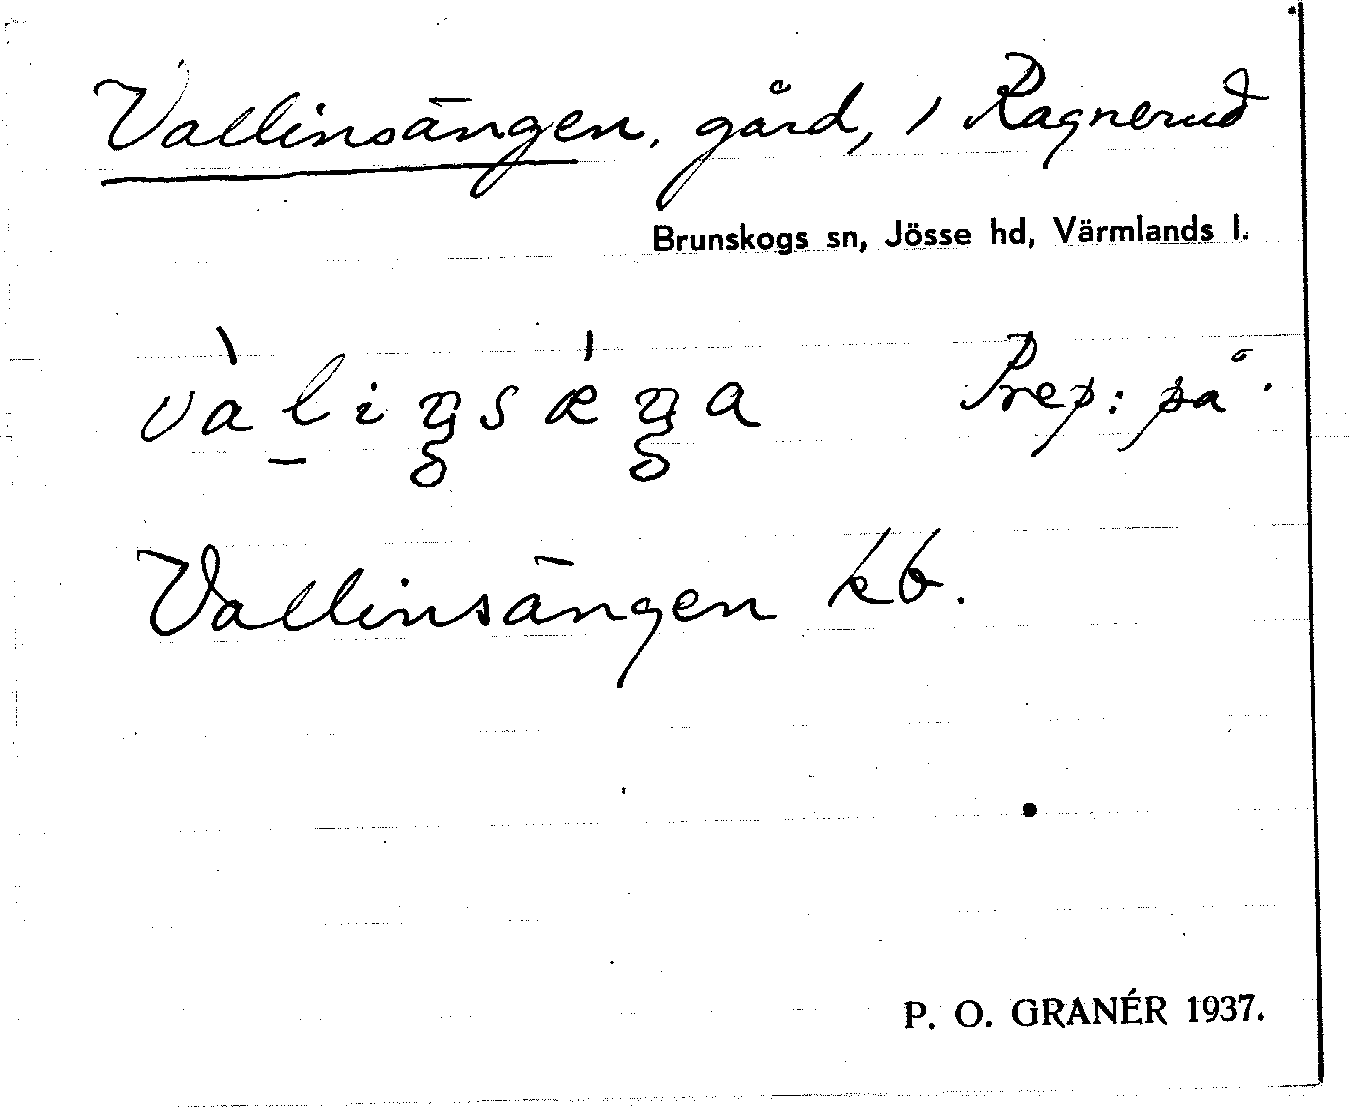 Vallinsängen, gård, i Ragnerud
Brunskogs sn, Jösse hd, Värmlands l.
vàli̠ŋsǽŋa Prep: på.
Vallinsängen kb.
P. O. GRANÉR 1937.